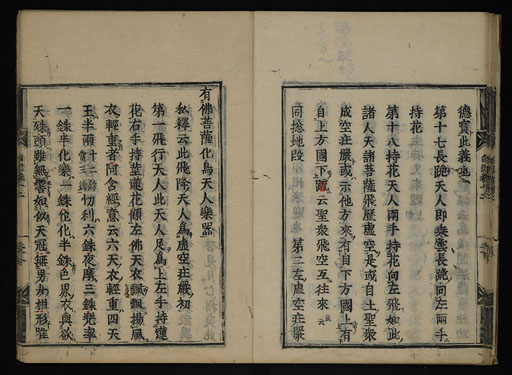 德寳此義也
第十七長跪天人即乘雲長跪向左兩手
持花
第十八持花天人兩手持花向左飛如此
諸人天諸菩薩飛歷虛空是或自土聖衆
成空在嚴或示他方來有自下方國上有
自上方國下 疏云聖衆飛空互往來云
同捻地叚 第二左虛空在嚴
有佛菩薩化鳥天人樂器
私釋云此飛降天人爲虛空在嚴初
第一飛行天人此天人足爲上左手持蓮
花右手持莖蓮花傾左佛天衣飄颻揚風
衣輕重者阿含經意云六天衣輕重四天
王半兩 忉利六銖夜魔三銖兠率
一銖半化樂一銖佗化半銖色界衣與欲
天銖頭雖無髻如似天冠無男女推形唯